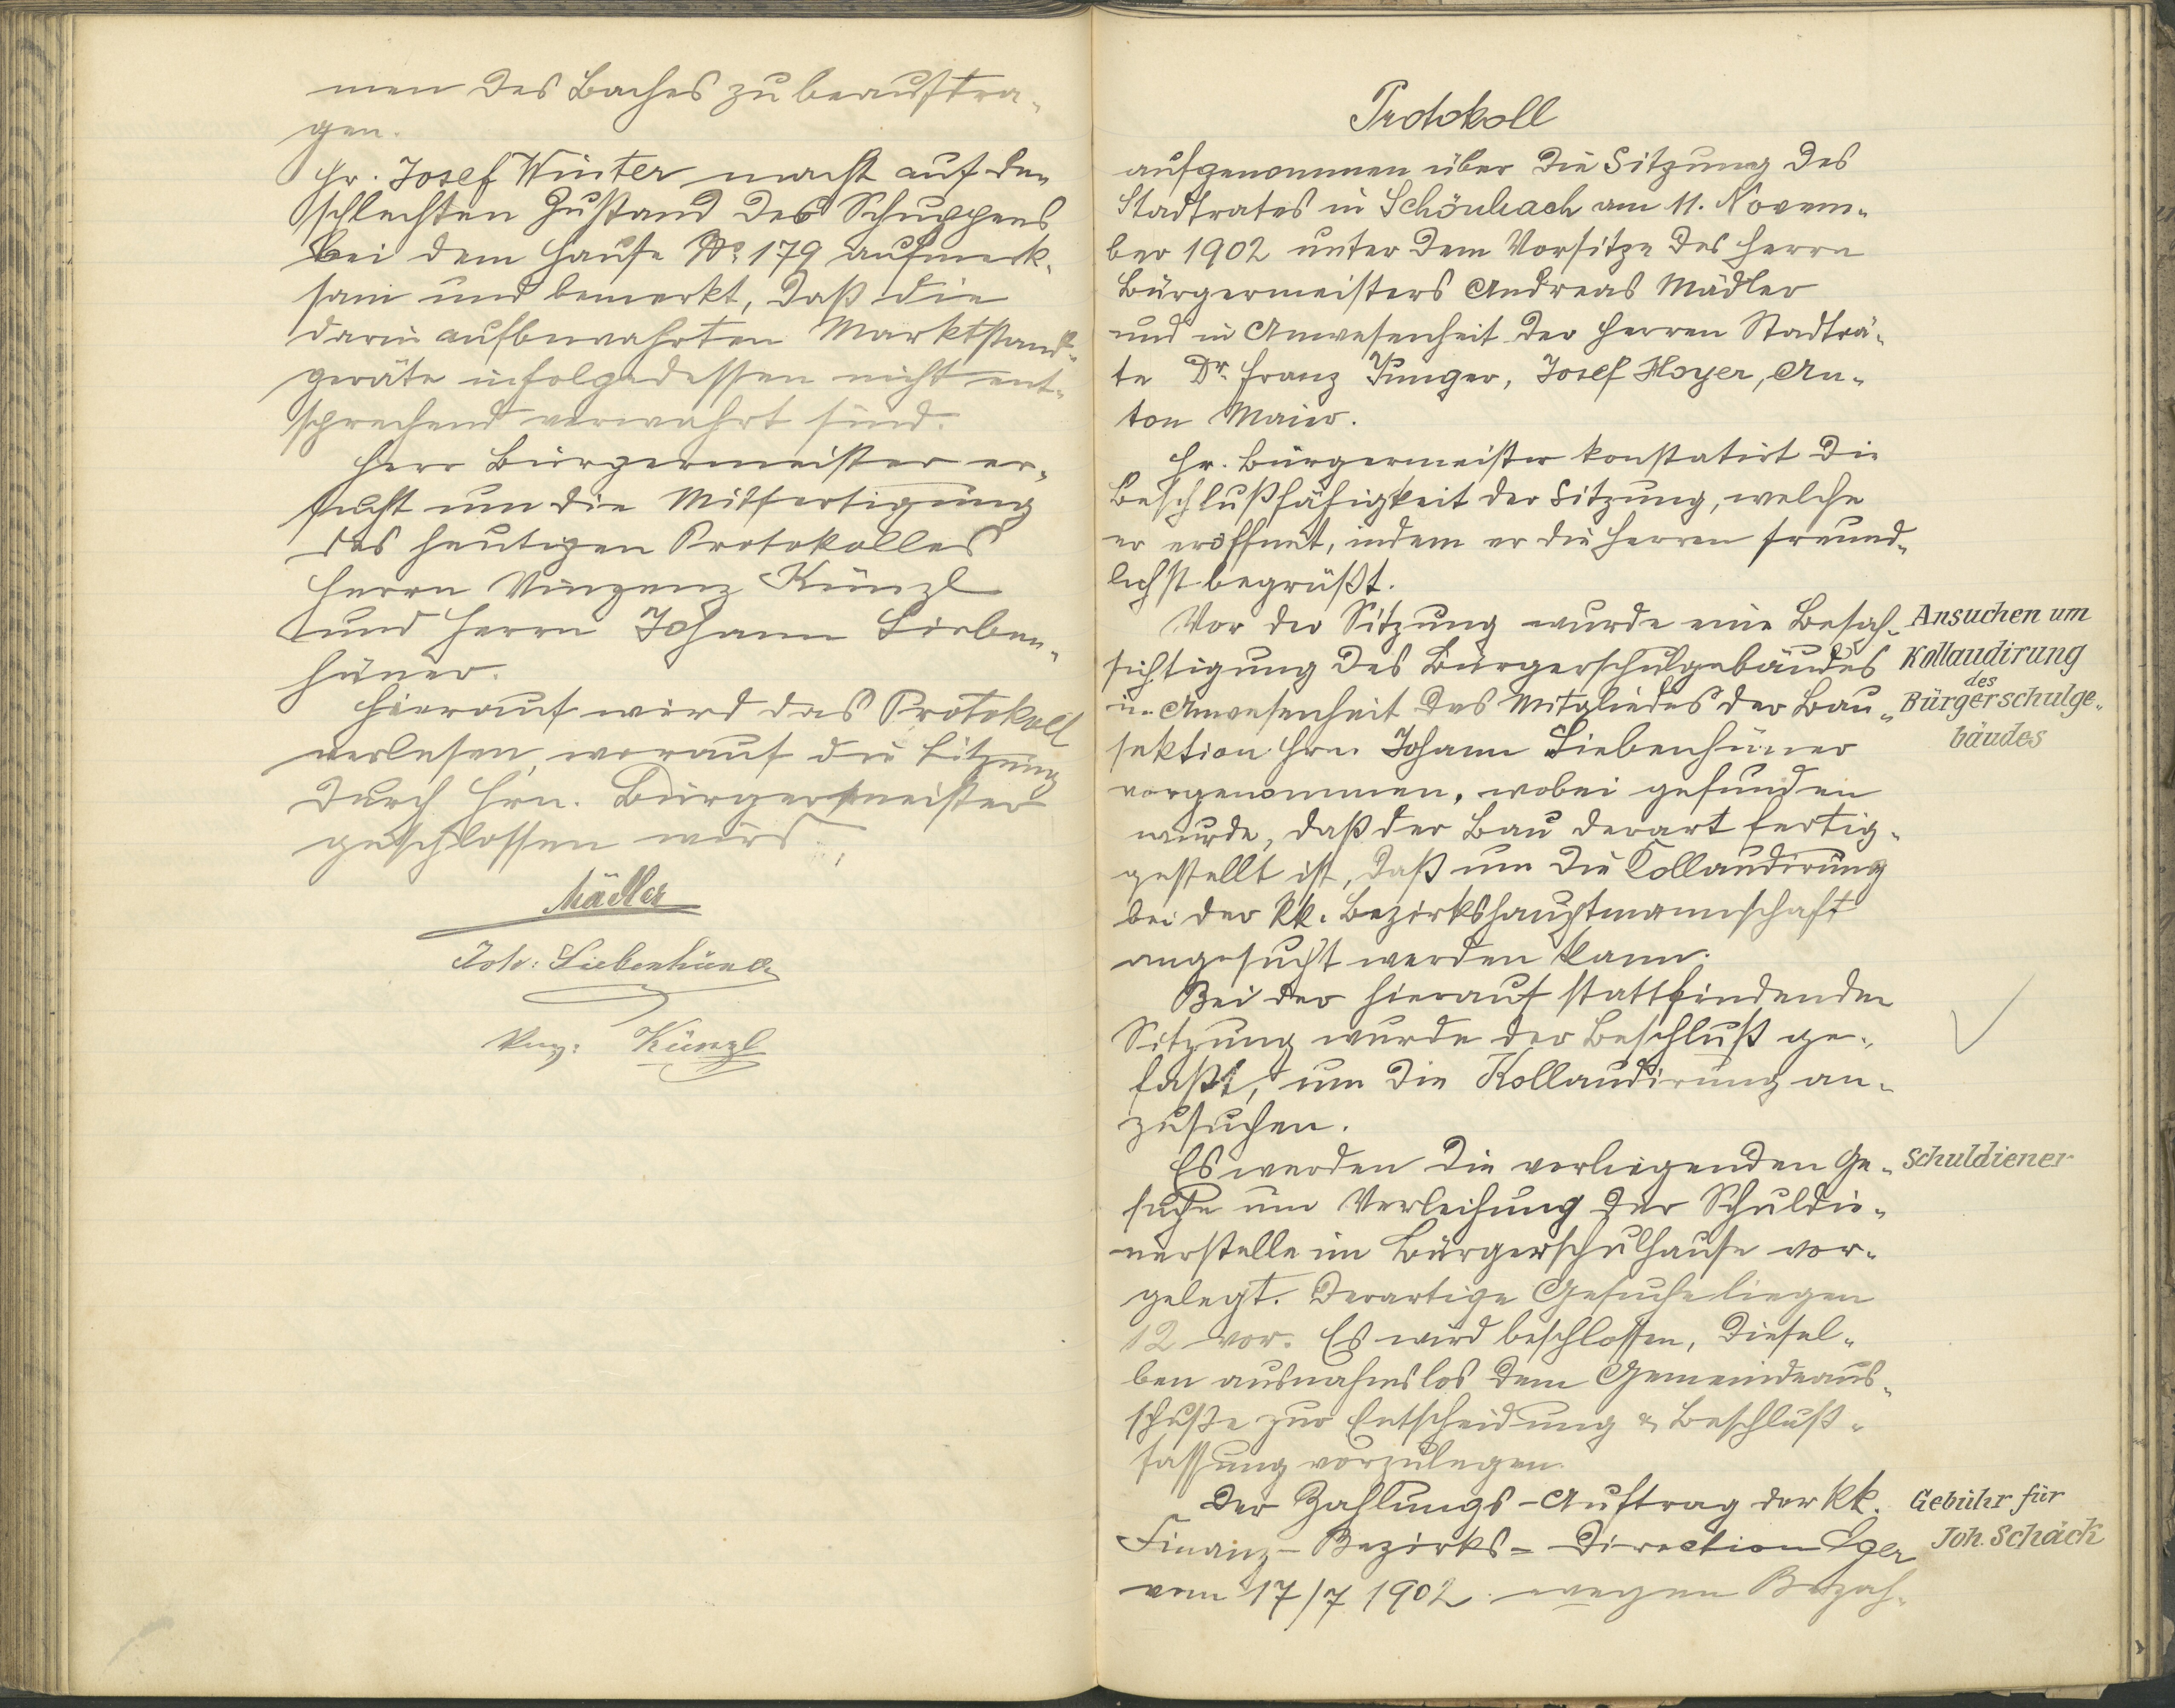 men des Baches zu beauftra-
gen.
Hr. Josef Winter macht auf den
schlechten Zustand des Schuppens
bei dem Hause No. 179 aufmerk-
sam und bemerkt, daß die
darin aufbewahrten Marktstand-
geräte infolgedessen nicht ent-
sprechend verwahrt sind.
Herr Bürgermeister er-
sucht um die Mitfertigung
des heutigen Protokolles
Herrn Vinzenz Künzl
und Herrn Johann Lieben-
hüner.
Hierauf wird das Protokoll
verlesen, worauf die Sitzung
durch Hrn. Bürgermeister
geschlossen wird.
Mädler
Joh: Liebenhüner
Vinz: Künzl
Protokoll
aufgenommen über die Sitzung des
Stadtrates in Schönbach am 11. Novem-
ber 1902 unter dem Vorsitze des Herrn
Bürgermeisters Andreas Mädler
und in Anwesenheit der Herren Stadträ-
te Dr. Franz Junger, Josef Hoyer, An-
ton Maier.
Hr. Bürgermeister konstatirt die
Beschlußfähigkeit der Sitzung, welche
er eröffnet, indem er die Herren freund-
lichst begrüßt.
Vor der Sitzung wurde eine Besch-
sichtigung des Bürgerschulgebäudes
in Anwesenheit des Mitgliedes der Bau-
sektion Hrn. Johann Liebenhüner
vorgenommen, wobei gefunden
wurde, daß der Bau derart fertig-
gestellt ist, daß um die Collaudirung
bei der kk. Bezirkshauptmannschaft
angesucht werden kann.
Ansuchen um
Kollaudirung
des
Bürgerschulge-
bäudes
Bei der hierauf stattfindenden
Sitzung wurde der Beschluß ge-
faßt, um die Kollaudirung an-
zusuchen.
Es werden die vorliegenden Ge-
suche um Verleihung der Schuldie-
nerstelle im Bürgerschulhause vor-
gelegt. Derartige Gesuche liegen
12 vor. Es wird beschlossen, diesel-
ben ausnahmslos dem Gemeindeaus-
schuße zur Entscheidung & Beschluß-
fassung vorzulegen.
Schuldiener
Der Zahlungs-Auftrag der kk.
Finanz-Bezirks-Direction Eger
vom 17/7 1902 wegen Bezah-
Gebühr für
Joh. Schäck